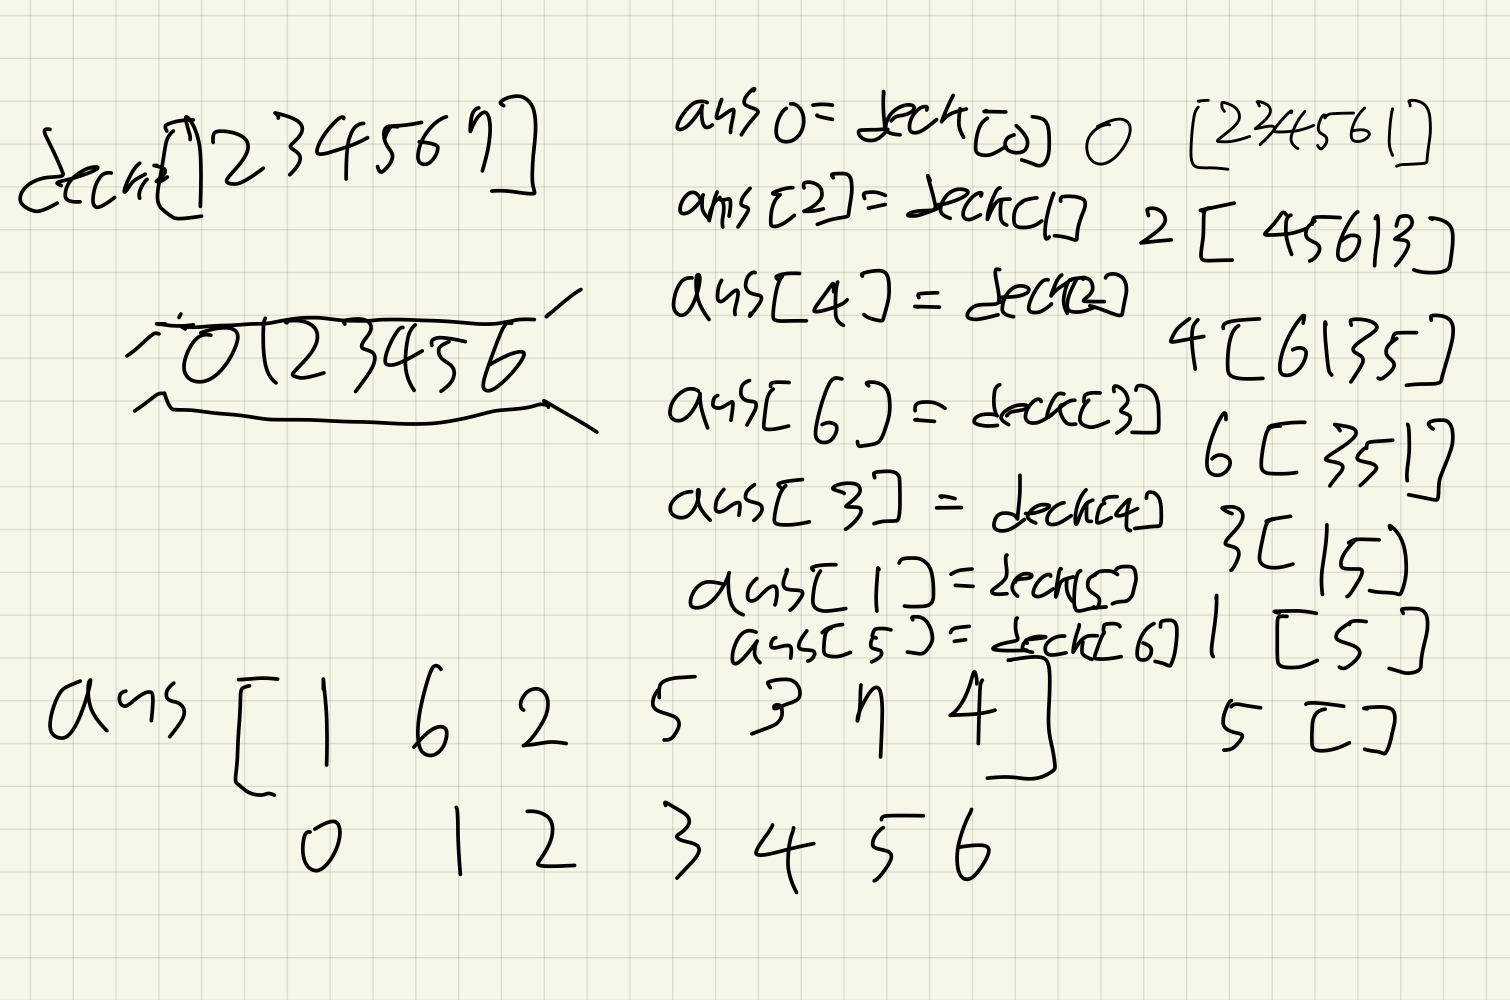 deck=[1234567]
0123456
ans0=deck[0] 0 [234561]
ans[2]=deck[1] 2 [45613]
ans[4]=deck[2] 4[6135]
ans[6]=deck[3] 6[351]
ans[3]=deck[4] 3[15]
ans[1]=deck[5] 1 [5]
ans[5]=deck[6] 5 []
ans [1 6 2 5 3 7 4]
0 1 2 3 4 5 6